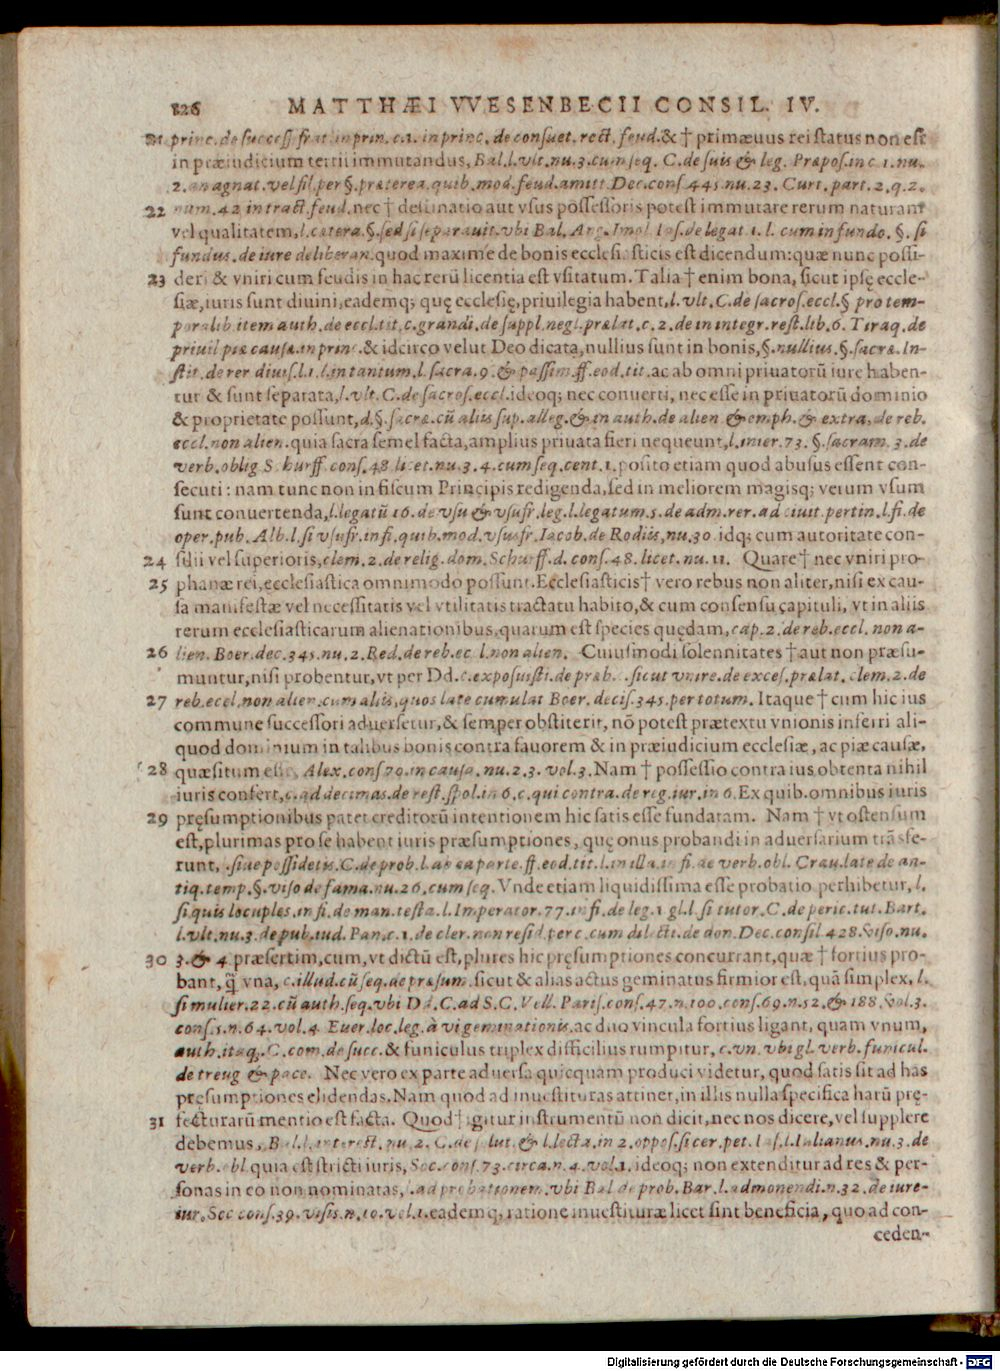 126 MATTHÆI VVESENBECII CONSIL. IV.
21 princ. de success. frat. in prin. c. 1. in princ. de consuet. rect. feud. & † primæuus rei status non est
in præiudicium tertii immutandus, Bal. l. vlt. nu. 3. cum seq. C. de suis & leg. Præpos. in c. 1. nu.
2. an agnat. vel fil. per §. præterea. quib. mod. feud. amitt. Dec. cons. 445. nu. 23. Curt. part. 2. q. 2.
22 num. 42 in tract. feud. nec † destinatio aut vsus possessoris potest immutare rerum naturam
vel qualitatem, l. cætera. §. sed si separauit. vbi Bal. Ang. Imol. Ias. de legat. 1. l. cum in fundo. §. si
fundus. de iure deliberan. quod maxime de bonis ecclesiasticis est dicendum: quæ nunc possi-
23 deri & vniri cum feudis in hac rerū licentia est vsitatum. Talia † enim bona, sicut ipsę eccle-
siæ, iuris sunt diuini, eademq; quę ecclesię, priuilegia habent, l. vlt. C. de sacros. eccl. § pro tem-
poralib. item auth. de eccl. tit. c. grandi. de suppl. negl. prælat. c. 2. de in integr. rest. lib. 6. Tiraq. de
priuil. piæ causæ. in princ. & idcirco velut Deo dicata, nullius sunt in bonis, §. nullius. §. sacræ. In-
stit. de rer diuis. l. 1. l. in tantum. l. sacra. 9. & passim. ff. eod. tit. ac ab omni priuatorū iure haben-
tur & sunt separata, l. vlt. C. de sacros. eccl. ideoq; nec conuerti, nec esse in priuatorū dominio
& proprietate possunt, d. §. sacræ. cū aliis sup. alleg. & in auth. de alien & emph. & extra. de reb.
eccl. non alien. quia sacra semel facta, amplius priuata fieri nequeunt, l. inter. 73. §. sacram. 3. de
verb. oblig Schurff. cons. 48 licet. nu. 3. 4. cum seq. cent. 1. posito etiam quod abusus essent con-
secuti: nam tunc non in fiscum Principis redigenda, sed in meliorem magisq; verum vsum
sunt conuertenda, l. legatū 16. de vsu & vsufr. leg. l. legatum. 5. de adm. rer. ad ciuit. pertin. l. fi. de
oper. pub. Alb. l. si vsufr. in fi. quib. mod. vsusfr. Iacob. de Rodiis, nu. 30. idq; cum autoritate con-
24 silii vel superioris, clem. 2. de relig. dom. Schurff. d. cons. 48. licet. nu. 11. Quare † nec vniri pro-
25 phanæ rei, ecclesiastica omnimodo possunt. Ecclesiasticis † vero rebus non aliter, nisi ex cau-
sa manifestæ vel necessitatis vel vtilitatis tractatu habito, & cum consensu capituli, vt in aliis
rerum ecclesiasticarum alienationibus, quarum est species quędam, cap. 2. de reb. eccl. non a-
26 lien. Boer. dec. 345. nu. 2. Red. de reb. eccl. non alien. Cuiusmodi solennitates † aut non præsu-
muntur, nisi probentur, vt per Dd. c. exposuisti. de præb. c. sicut vnire. de exces. prælat. clem. 2. de
27 reb. eccl. non alien. cum aliis, quos late cumulat Boer. decis. 345. per totum. Itaque † cum hic ius
commune successori aduersetur, & semper obstiterit, nō potest prætextu vnionis inferri ali-
quod dominium in talibus bonis contra fauorem & in præiudicium ecclesiæ, ac piæ causæ,
28 quæsitum esse, Alex. cons. 79. in causa. nu. 2. 3. vol. 3. Nam † possessio contra ius obtenta nihil
iuris confert, c. ad decimas. de rest. spol. in 6. c. qui contra. de reg. iur. in 6. Ex quib. omnibus iuris
29 pręsumptionibus patet creditorū intentionem hic satis esse fundatam. Nam † vt ostensum
est, plurimas pro se habent iuris præsumptiones, quę onus probandi in aduersarium trāsfe-
runt, l. siue possidetis. C. de prob. l. ab ea parte. ff. eod. tit. l. in illa. in fi. de verb. obl. Crau. late de an-
tiq. temp. §. viso de fama. nu. 26. cum seq. Vnde etiam liquidissima esse probatio perhibetur, l.
si quis locuples. in fi. de man. testa. l. Imperator. 77. in fi. de leg. 1 gl. l. si tutor. C. de peric. tut. Bart.
l. vlt. nu. 3. de pub. iud. Pan. c. 1. de cler. non resid. per c. cum dilecti. de don. Dec. consil 428. viso. nu.
30 3. & 4 præsertim, cum, vt dictū est, plures hic pręsumptiones concurrant, quæ † fortius pro-
bant, q̃ vna, c. illud. cū seq. de præsum. sicut & alias actus geminatus firmior est, quā simplex, l.
si mulier. 22. cū auth. seq. vbi Dd. C. ad S. C. Vell. Paris. cons. 47. n. 100. cons. 69. n. 52. & 188. vol. 3.
cons. 5. n. 64. vol. 4. Euer. loc. leg. à vi geminationis. ac duo vincula fortius ligant, quam vnum,
auth. itaq;. C. com. de succ. & funiculus triplex difficilius rumpitur, c. vn. vbi gl. verb. funicul.
de treug & pace. Nec vero ex parte aduersa quicquam produci videtur, quod satis sit ad has
pręsumptiones elidendas. Nam quod ad inuestituras attinet, in illis nulla specifica harū pre-
31 fecturarū mentio est facta. Quod † igitur instrumentū non dicit, nec nos dicere, vel supplere
debemus, Bal. l. interest. nu. 2. C. de solut. & l. lecta. in 2. oppos. si cer. pet. Ias. l. Iulianus. nu. 3. de
verb. obl. quia est stricti iuris, Soc. cons. 73. circa. n. 4. vol. 1. ideoq; non extenditur ad res & per-
sonas in eo non nominatas, l. ad probationem. vbi Bal de prob. Bar. l. admonendi. n. 32. de iure-
iur. Soc cons. 39. visis. n. 10. vol. 1. eademq, ratione inuestituræ licet sint beneficia, quo ad con-
ceden-
Digitalisierung gefördert durch die Deutsche Forschungsgemeinschaft - DFG